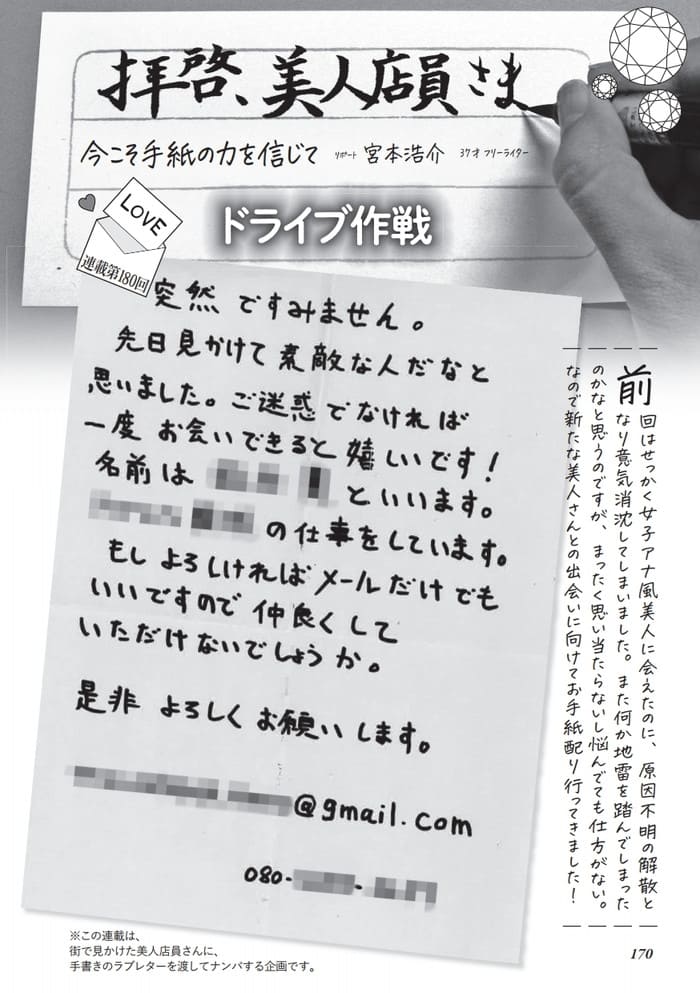 拝啓、美人店員さま
今こそ手紙の力を信じて リポート 宮本浩介 37才 フリーライター
LOVE
連載第180回
ドライブ作戦
突然ですみません。
先日見かけて素敵な人だなと
思いました。ご迷惑でなければ
一度お会いできると嬉しいです!
名前は といいます。
の仕事をしています。
もしよろしければメールだけでも
いいですので仲良くして
いただけないでしょうか。
是非よろしくお願いします。
@gmail.com
080- -
前回はせっかく女子アナ風美人に会えたのに、原因不明の解散と
なり意気消沈してしまいました。また何か地雷を踏んでしまった
のかなと思うのですが、まったく思い当たらないし悩んでても仕方がない。
なので新たな美人さんとの出会いに向けてお手紙配り行ってきました!
※この連載は、
街で見かけた美人店員さんに、
手書きのラブレターを渡してナンパする企画です。
170